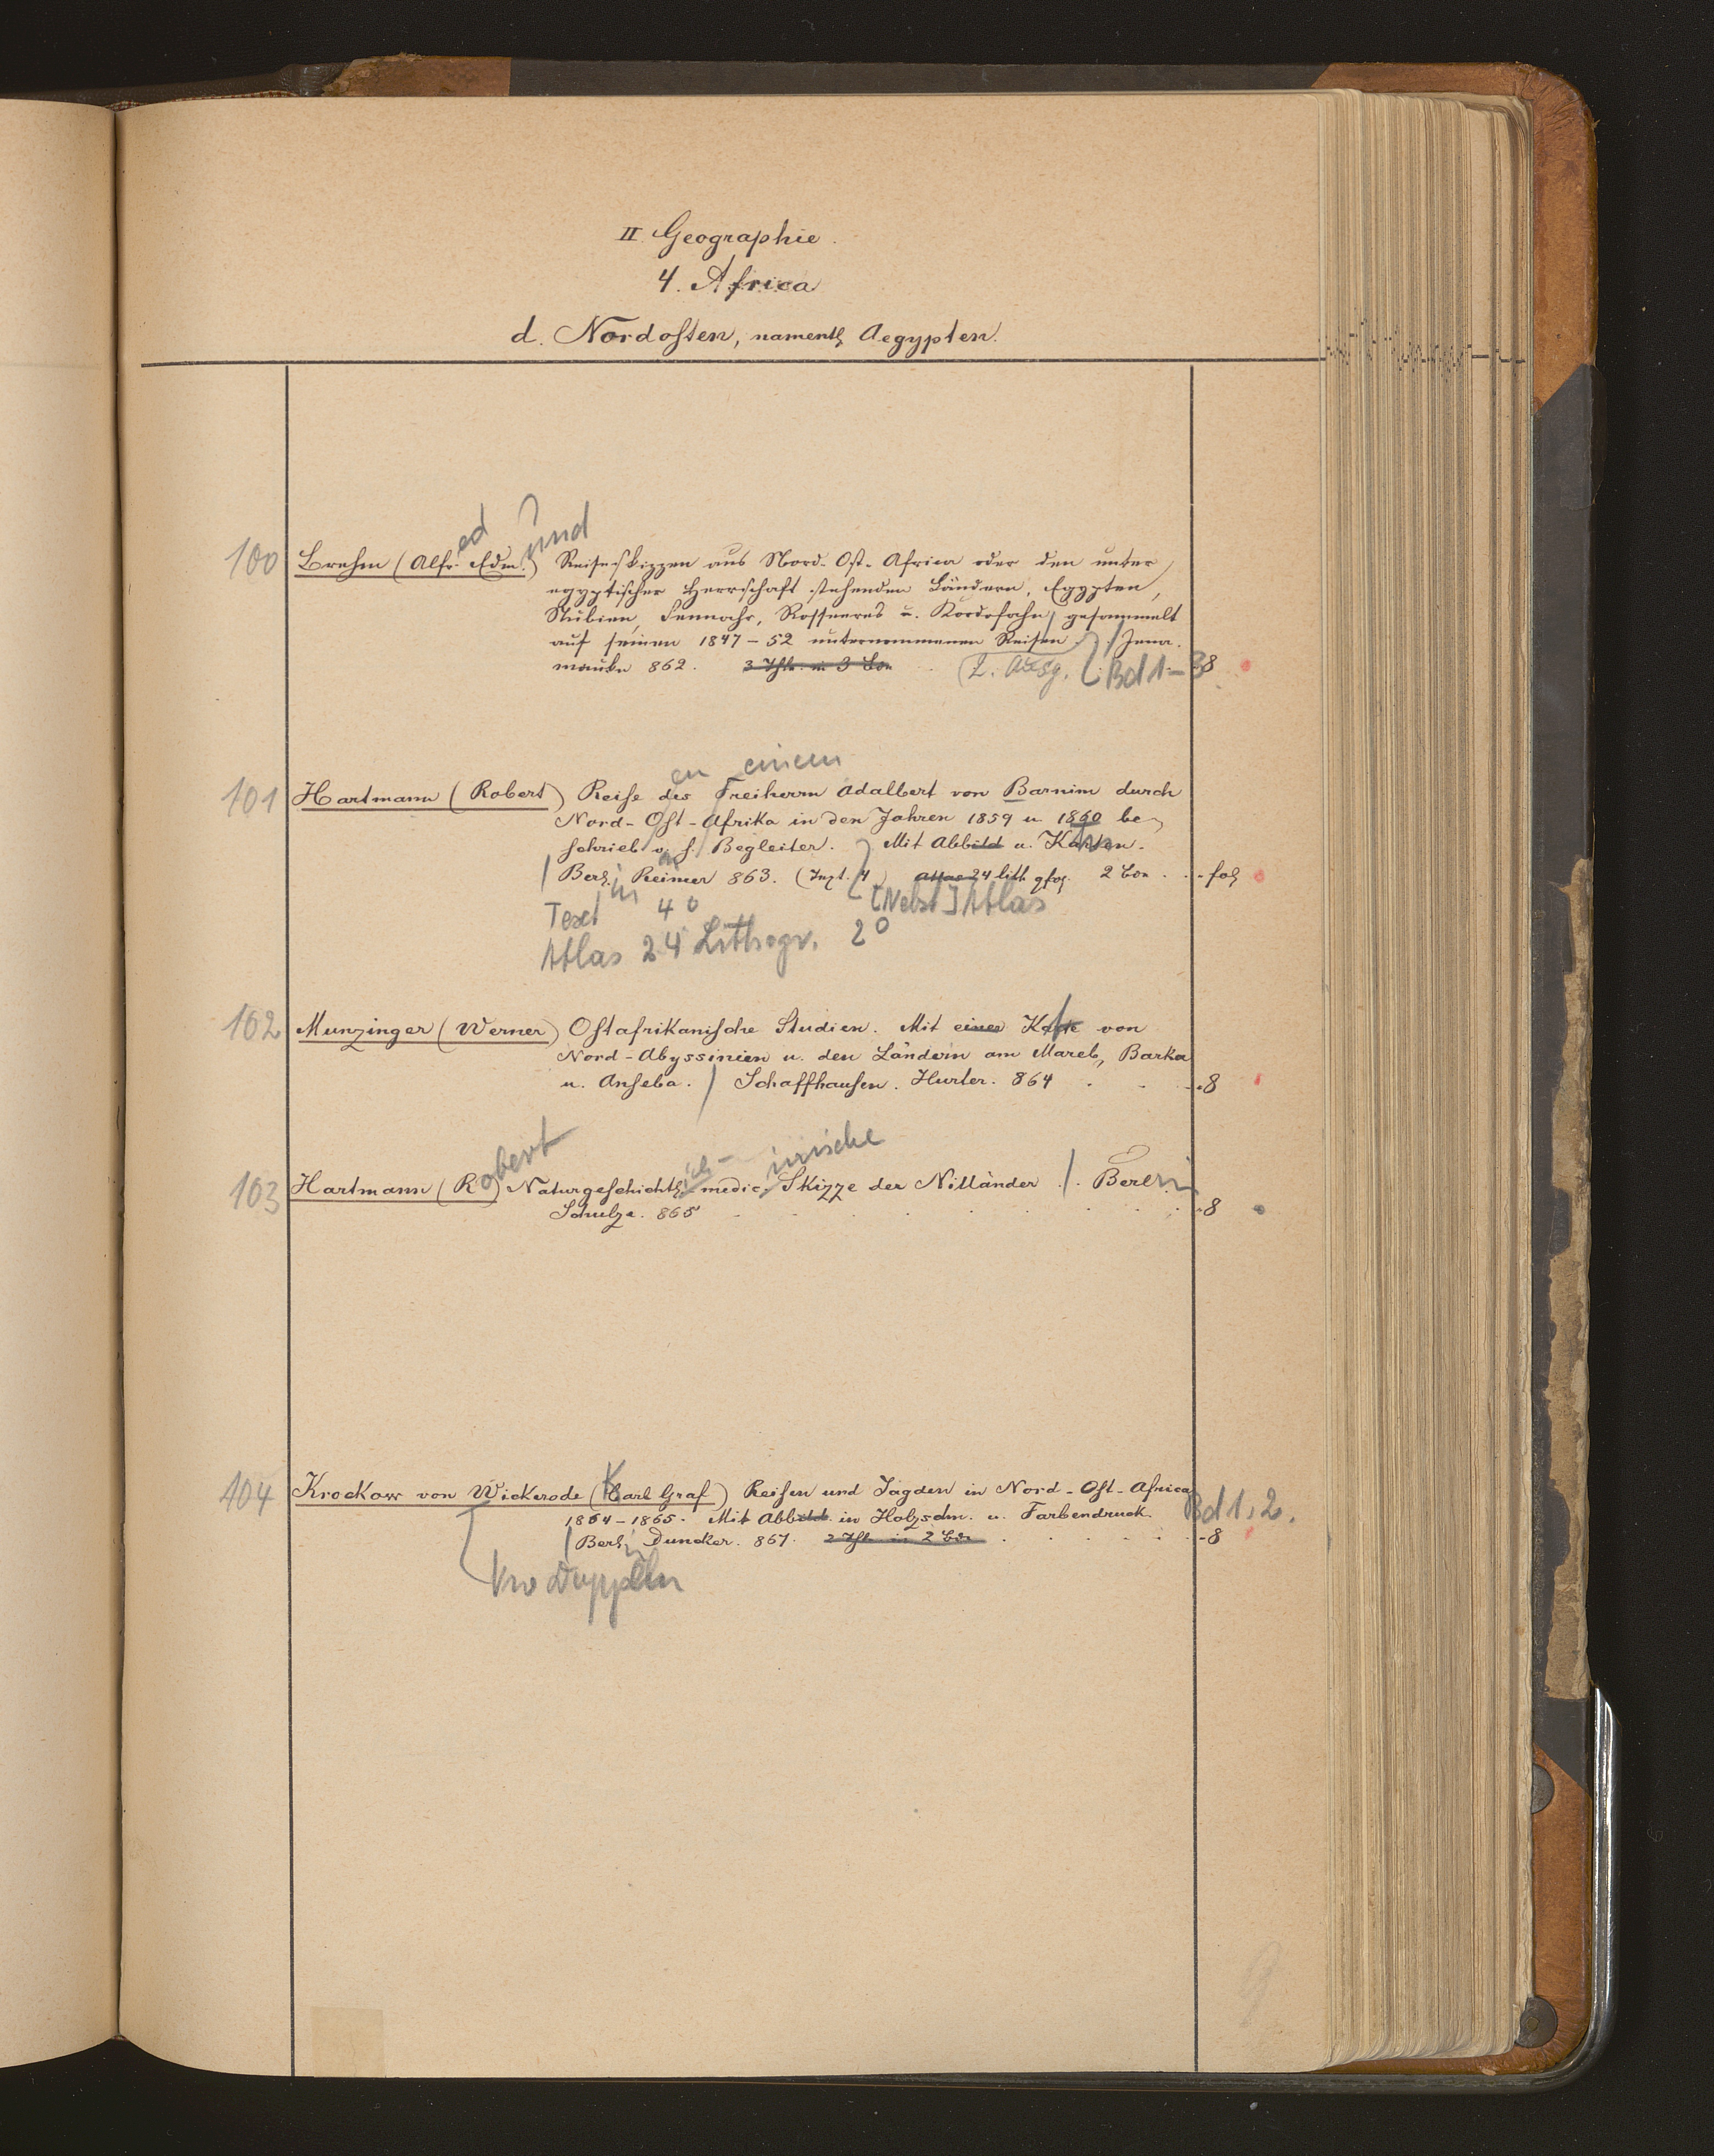 II. Geographie.
4. Africa
d. Nordosten, namentl. Aegypten.
ed und
100 Brehm (Alfr. Edm.) Reiseskizzen aus Nord-Ost-Africa oder den unter
egyptischer Herrschaft stehenden Ländern, Egypten,
Nubien, Sennahr, Rosseeres u. Kordofahn gesammelt
auf seinen 1847-52 unternommenen Reisen. / Jena.
mauke 862. 3 Thle. in 3 Bdn (2. Ausg. Bd 1-3 8
en einem
101 Hartmann (Robert) Reise des Freiherrn Adalbert von Barnim durch
Nord-Ost-Afrika in den Jahren 1859 u. 1860 be-
schrieb v. s. Begleiter. Mit Abbild u. Karten.
/ Berl. Reimer 863. (Text. 4) Atlas 24 lith qfol. 2 Bde. - fol
Text in 4° [Nebst] Atlas
Atlas 24 Lithogr. 2°
102 Munzinger (Werner) Ostafrikanische Studien. Mit einer Karte von
Nord-Abyssinien u. den Ländern am Mareb, Barka
u. Anseba. / Schaffhausen. Hurter. 864 . - - 8
obert ich- inische
103 Hartmann (R) Naturgeschichtl. medic. Skizze der Nilländer. / . Berlin
Schulze. 865 - 8
104 Krockow von Wickerode (Karl Graf) Reisen und Jagden in Nord-Ost-Africa
1864-1865. Mit Abbild. in Holzschn. u. Farbendruck. Bd 1. 2.
/ Berlin Duncker. 867. 2 Thle in 2 Bdn - 8